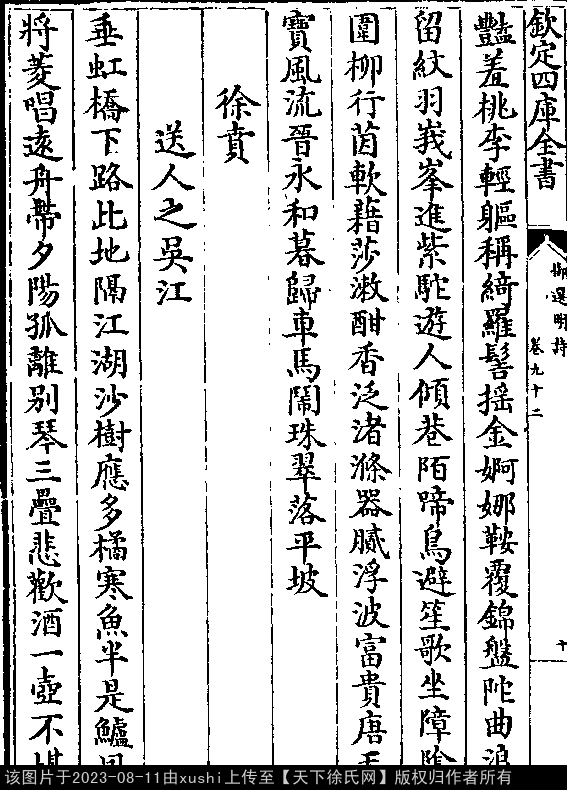 欽定四庫全書
御選明詩
卷九十二
十
豔羞桃李輕軀稱綺羅髻揺金婀娜鞍覆錦盤陀曲浪
留紋羽峩峯進紫駝遊人傾巷陌蹄鳥避笙歌坐障陰
圍柳行茵軟藉莎漱酣香泛渚滌器膩浮波富貴唐天
寶風流晉永和暮歸車馬鬧珠翠落平坡
徐賁
送人之吳江
垂虹橋下路此地隔江湖沙樹應多橘寒魚半是鱸
將菱唱逺舟帶夕陽孤離别琴三疊悲歡酒一壺不堪
该图片于2023-08-11由xushi上传至【天下徐氏网】版权归作者所有